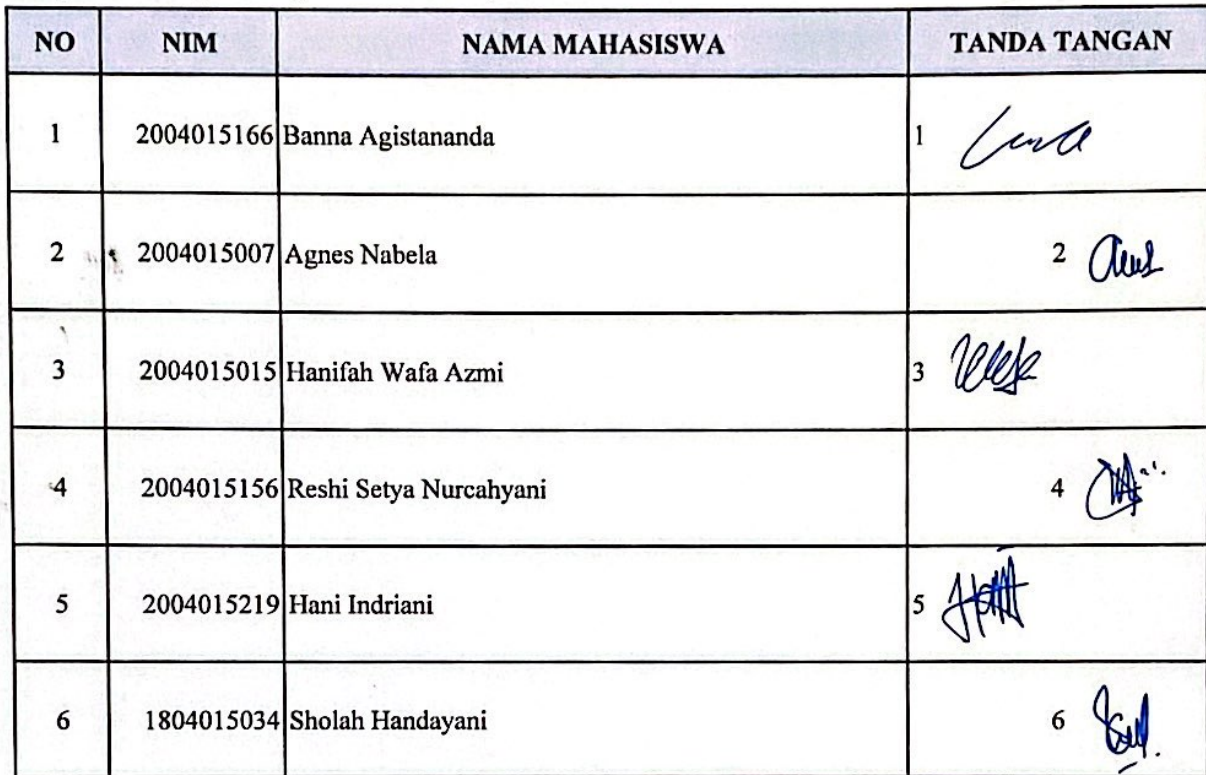 NO NIM NAMA MAHASISWA TANDA TANGAN
1 2004015166 Banna Agistananda 1
2 2004015007 Agnes Nabela 2
3 2004015015 Hanifah Wafa Azmi 3
4 2004015156 Reshi Setya Nurcahyani 4
5 2004015219 Hani Indriani 5
6 1804015034 Sholah Handayani 6